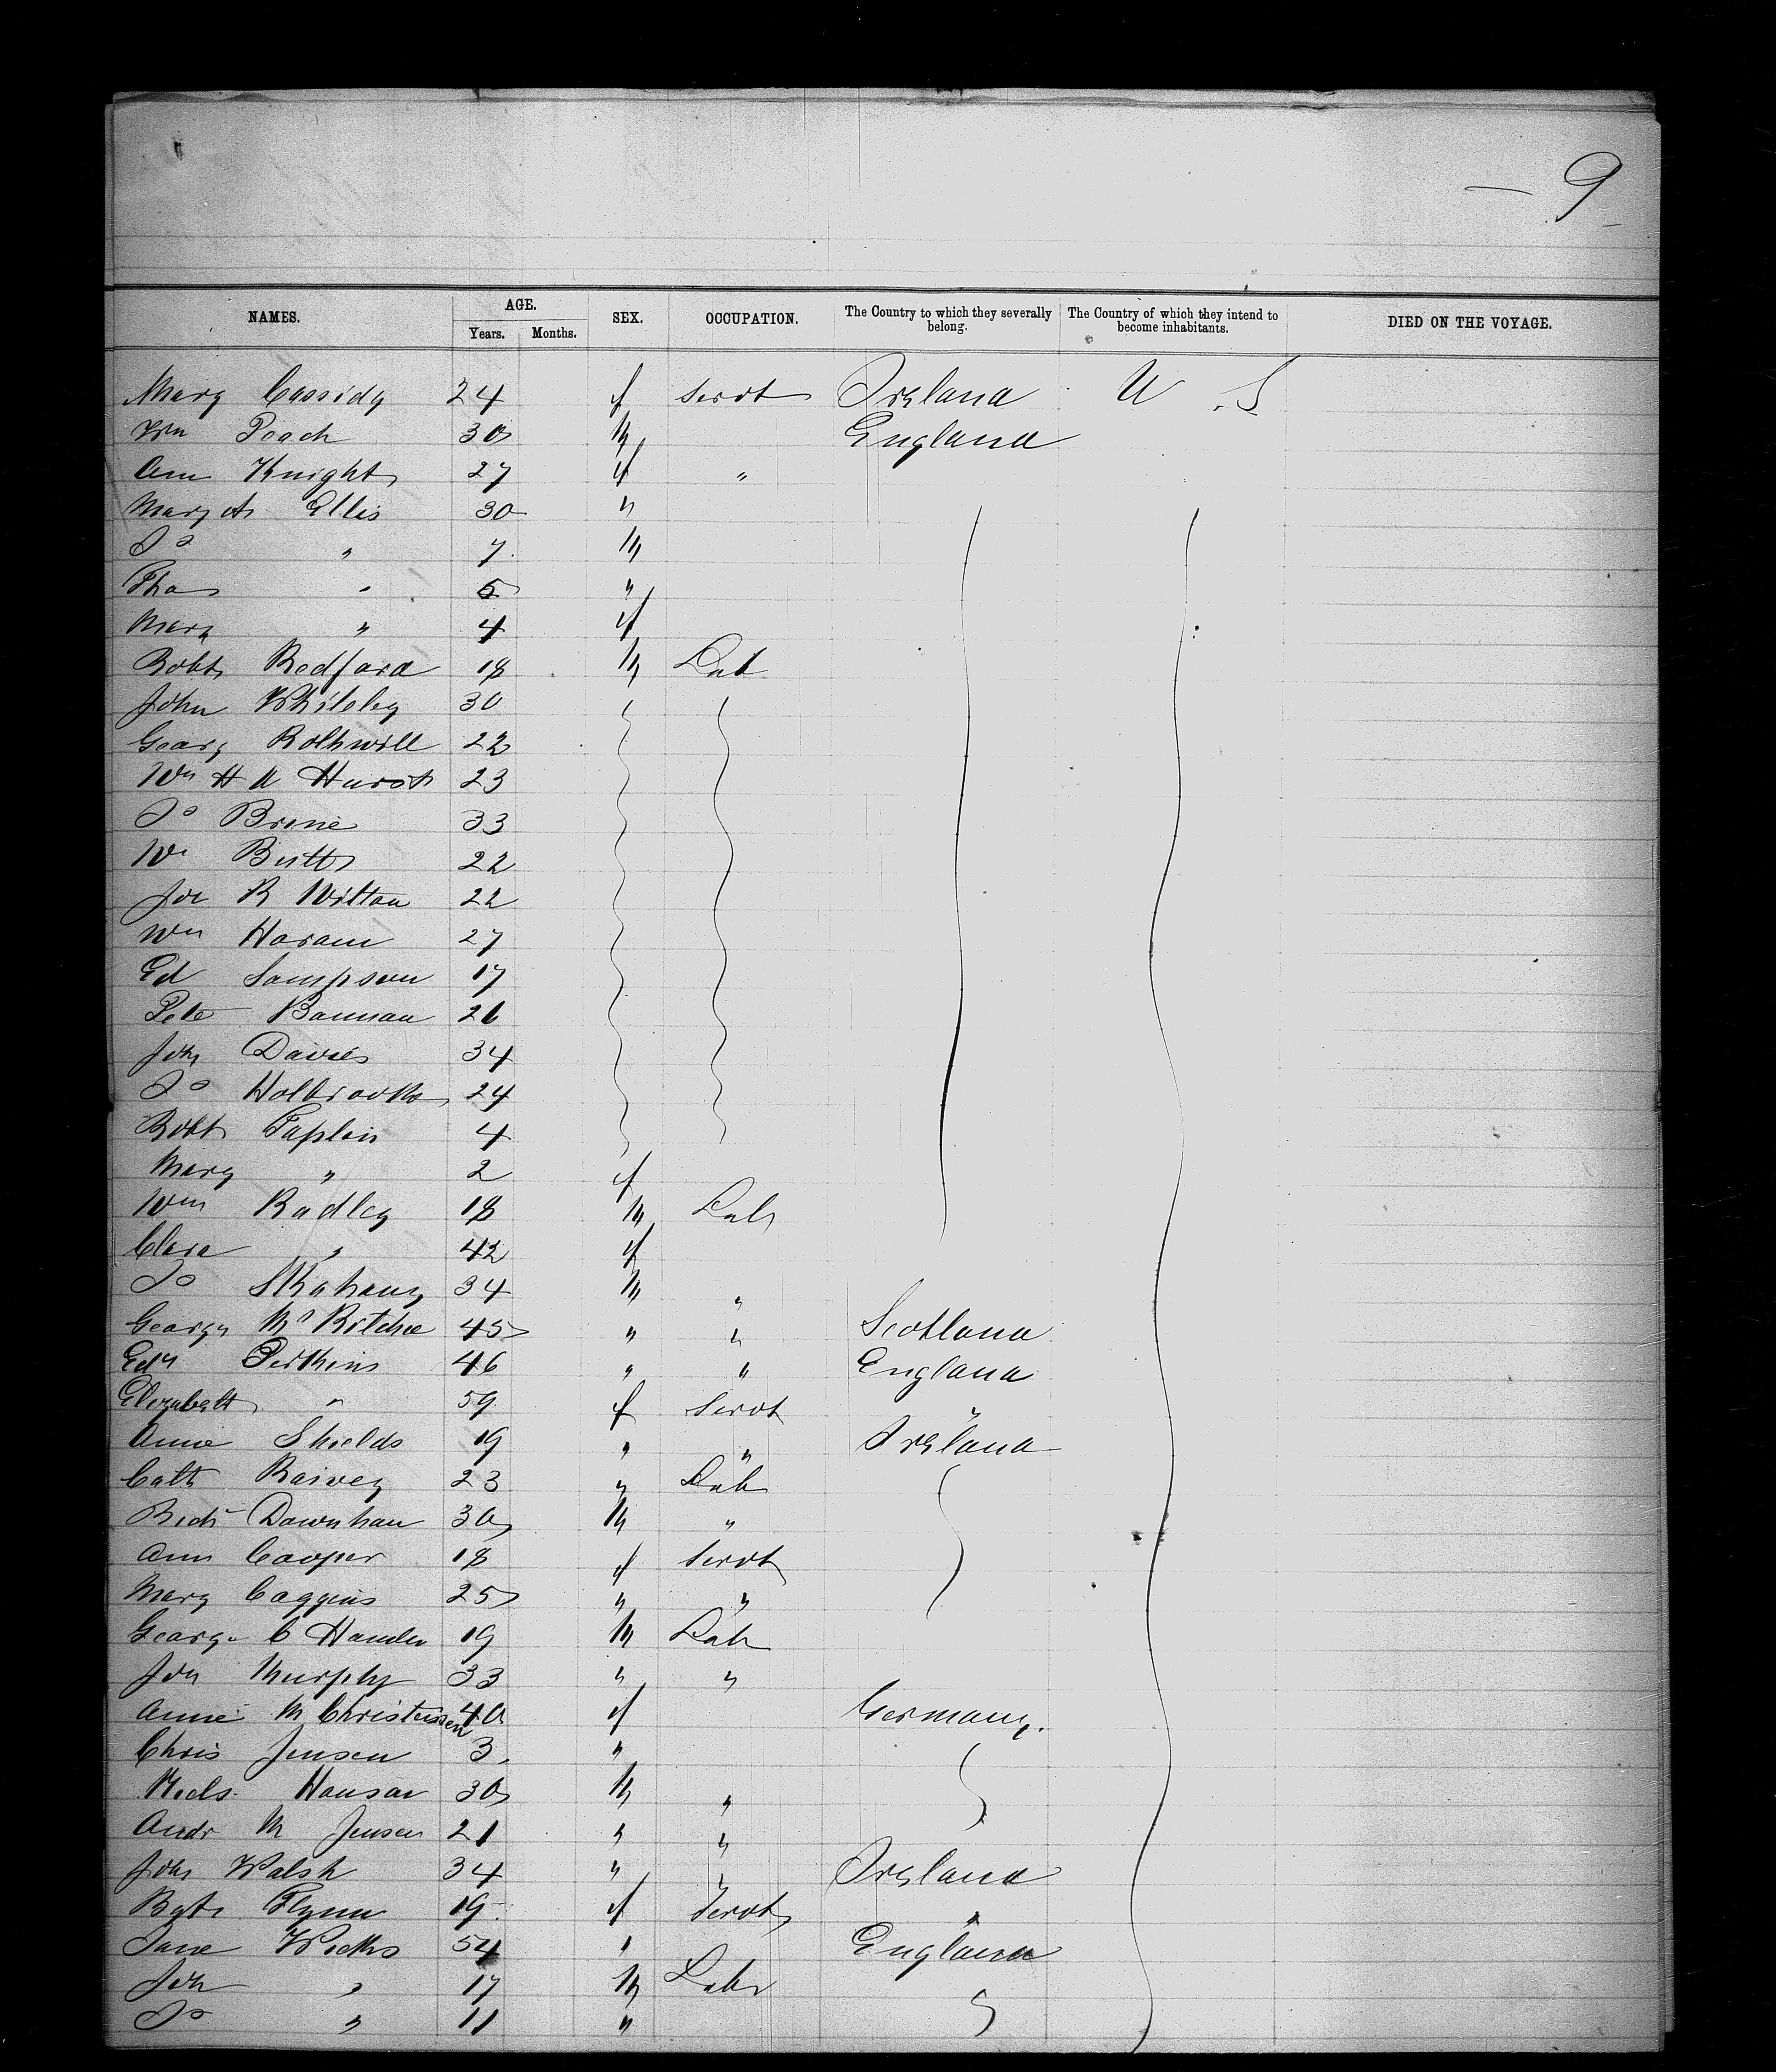 — 9
NAMES. AGE. Years. Months. SEX. OCCUPATION. The Country to which they severally belong. The Country of which they intend to become inhabitants. DIED ON THE VOYAGE.
Mary Cassidy 24 f Servt Ireland U.S
Wm Peach 30 M England
Ann Knight 27 f "
Margt Ellis 30 "
Jo " 7 M
Tho " 5 "
Mary " 4 f
Robt Redford 18 M Lab
John Whiteley 30
Georg Rothwill 22
Wm H Hurst 23
Jo Brine 33
Wm Butt 22
Jon R Wilton 22
Wm Haram 27
Ed Sampson 17
Pete Bannan 26
Jon Davies 34
Jo Holbrook 24
Robt Taplin 4
Mary " 2 f
Wm Radley 18 M Lab
Clara " 42 f
Jo 34 M "
George Mc Ritchie 45 " " Scotland
Edn Perkins 46 " " England
Elizabeth " 59 f Servt "
Annie Shields 19 " " Ireland
Cath 23 " Lab
Richd Downham 30 M "
Ann Cooper 18 f Servt
Mary Coggins 25 " "
George C 19 M Lab
Jon Murphy 33 " "
Annie M Christensen 40 f Germany.
Chris Jensen 3 "
Neils Hansen 30 M "
Andr M Jensen 21 " "
John Walsh 34 " " Ireland
Bgt Flynn 19 f Servt "
Jane Weeks 54 " England
Joh " 17 M Labr
Jo " 11 "